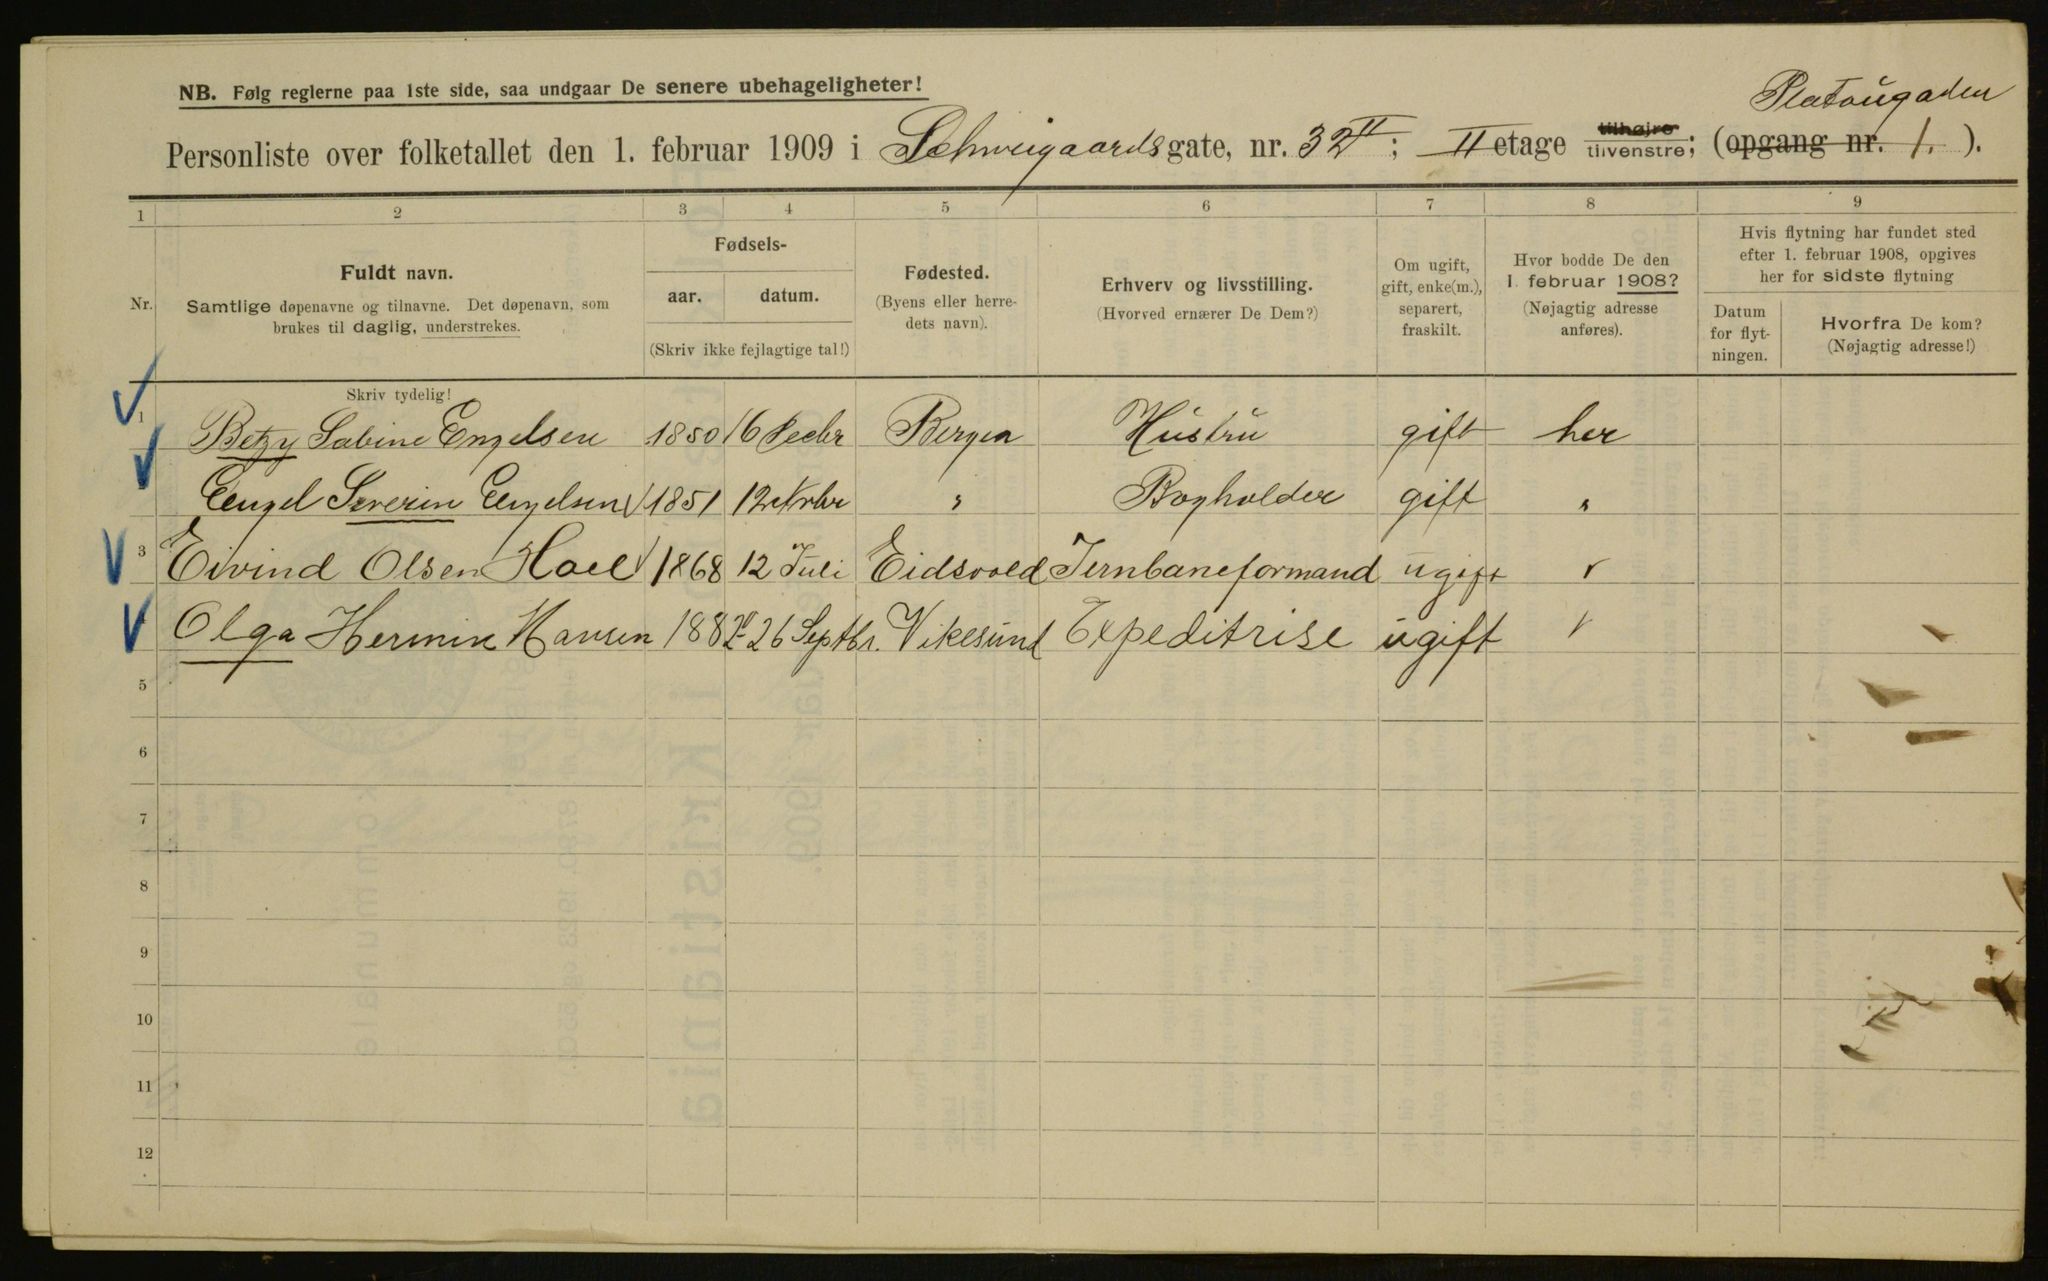 Platougaden
NB. Følg reglerne paa 1ste side, saa undgaar De senere ubehageligheter!
Personliste over folketallet den 1. februar 1909 i Schweigaardsgate, nr. 32 II; II etage tilhøjre tilvenstre; (opgang nr. 1.).
1 2 3 4 5 6 7 8 9
Nr.
Fuldt navn.
Samtlige døpenavne og tilnavne. Det døpenavn, som
brukes til daglig, understrekes.
Fødsels-
aar. datum.
(Skriv ikke fejlagtige tal!)
Fødested.
(Byens eller herre-
dets navn).
Erhverv og livsstilling.
(Hvorved ernærer De Dem?)
Om ugift,
gift, enke(m.),
separert,
fraskilt.
Hvor bodde De den
1. februar 1908?
(Nøjagtig adresse
anføres).
Hvis flytning har fundet sted
efter 1. februar 1908, opgives
her for sidste flytning
Datum
for flyt-
ningen.
Hvorfra De kom?
(Nøjagtig adresse!)
Skriv tydelig!
1 Betzy Sabine Engelsen 1850 16 Decbr Bergen Hustru gift her
Engel Severin Engelsen 1851 12 Novbr " Bogholder gift "
3 Eivind Olsen Hoel 1868 12 Juli Eidsvold Jernbaneformand ugift "
Olga Hermine Hansen 1882 26 Septbr. Vikesund Expeditrise ugift "
5
6
7
8
9
10
11
12